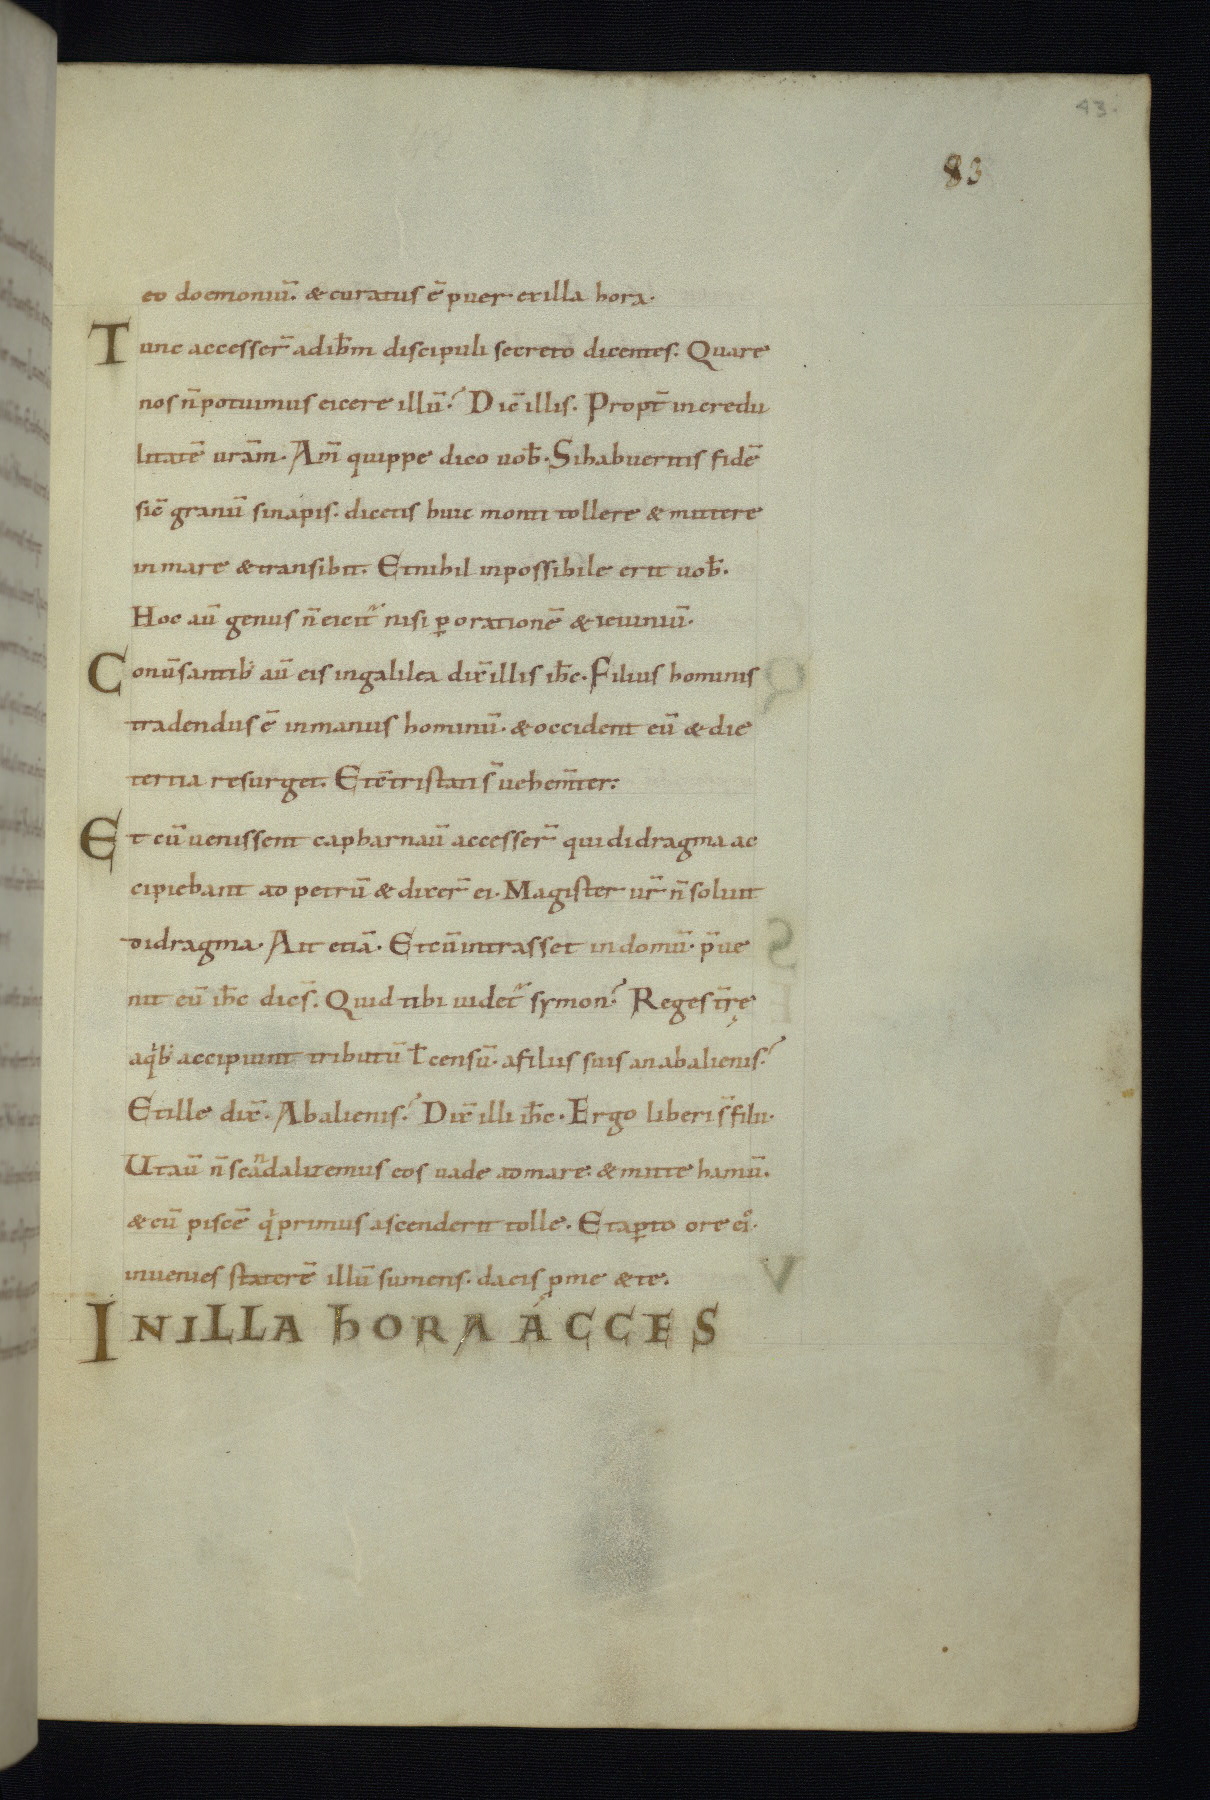 43.
83
eo doemoniū. & curatus ē puer exilla hora.
Tunc accesser̄ adih̄m discipuli secreto dicentes. Quare
nos n̄ potuimus eicere illū? Dic̄ illis. Propt̄ incredu
litatē ur̄am. Am̄ quippe dico uob̄. Sihabueritis fidē
sic̄ granū sinapis. dicetis huic monti tollere & mittere
inmare & transibit. Etnihil inpossibile erit uob̄.
Hoc aū genus n̄ eicit᷑ nisi ꝑ orationē & ieiuniū.
Conūsantib; aū eis ingalilea dix̄ illis ih̄c. Filius hominis
tradendus ē inmanus hominū. & occident eū & die
tertia resurget. Etc̄tristati s̄ uehem̄ter.
Et cū uenissent capharnaū accesser̄ qui didragma ac
cipiebant ad petrū & dixer̄ ei. Magister ur̄ n̄ soluit
didragma. Ait etiā. Etcū intrasset indomū. p̄ue
nit eū ih̄c dic̄s. Quid tibi uidet᷑ symon? Reges t̄rę
aqͥb; accipiunt tributū ł censū. afiliis suis anabalienis?
Etille dix̄. Abalienis? Dix̄ illi ih̄c. Ergo liberi s̄ filii.
Utaū n̄ scandalizemus eos uade admare. & mitte hamū.
& eū piscē qͥ primus ascenderit tolle. Etaꝑto ore ei᷒.
inuenies staterē illū sumens. da eis ꝓme & te.
INILLA HORA ACCES